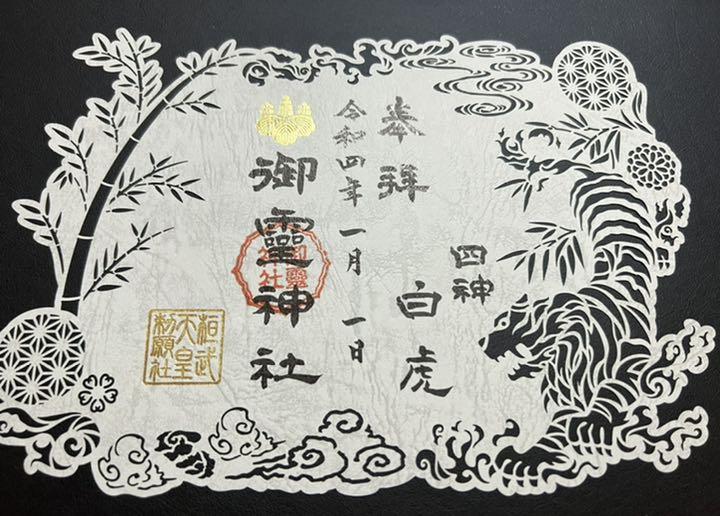 奉拝
四神
白虎
令和四年 一月 一日
御靈神社
御靈神社
桓武
天皇
勅願社